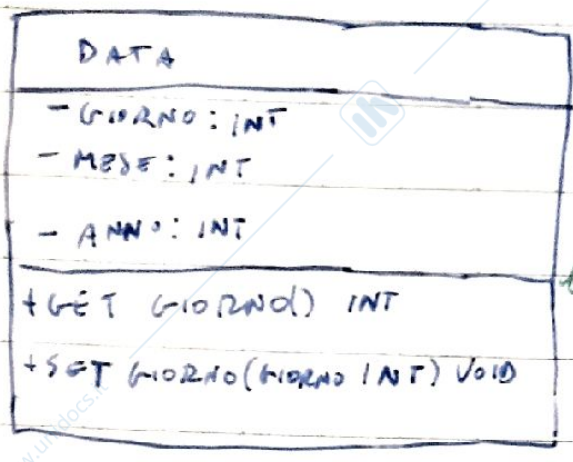 DATA
- GIORNO: INT
- MESE: INT
- ANNO: INT
+ GET GIORNO() INT
+ SET GIORNO(GIORNO INT) VOID